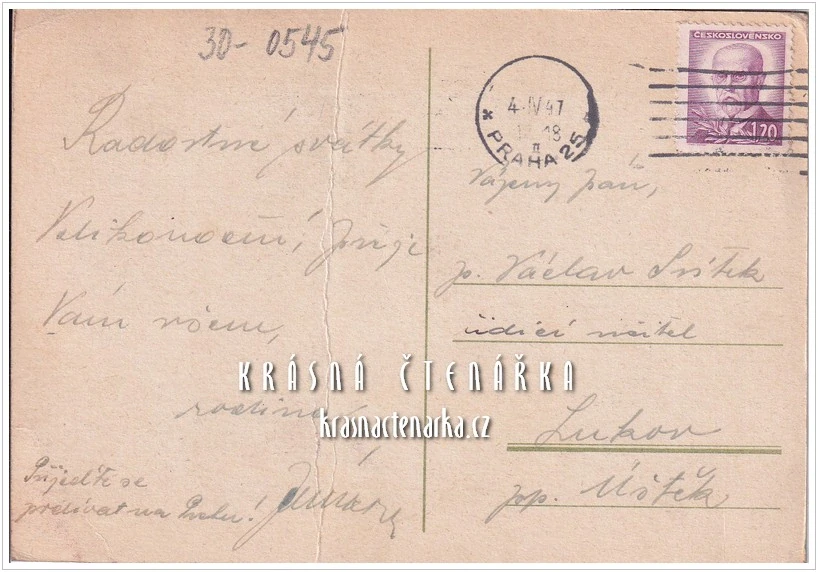 30-0545
ČESKOSLOVENSKO
1.20
4.IV 47
18
II
* PRAHA 25
Radostné svátky
Velikonoční, přeje
Vám všem,
rodina
Přijeďte se
podívat na Prahu!
Vážený pán,
p. Václav
řídící učitel
Lukov
pp. Úštěk
KRÁSNÁ ČTENÁŘKA
krasnactenarka.cz